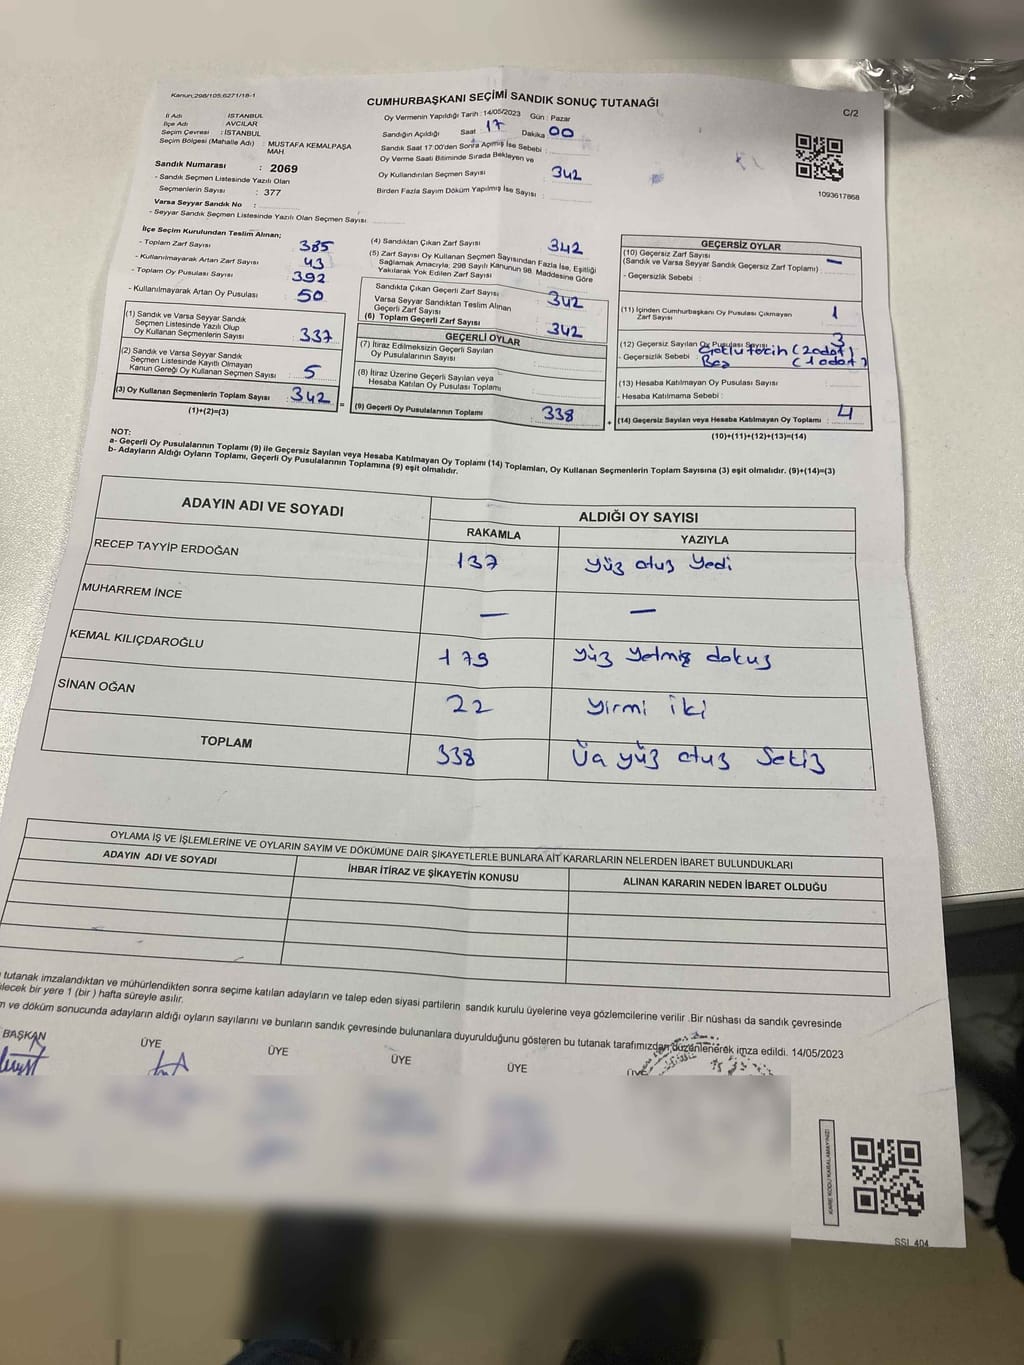 Kanun:298/105;6271/18-1
CUMHURBAŞKANI SEÇİMİ SANDIK SONUÇ TUTANAĞI
C/2
İl Adı : İSTANBUL
İlçe Adı AVCILAR
Seçim Çevresi : İSTANBUL
Seçim Bölgesi (Mahalle Adı) : MUSTAFA KEMALPAŞA MAH
Sandık Numarası : 2069
- Sandık Seçmen Listesinde Yazılı Olan
Seçmenlerin Sayısı : 377
Varsa Seyyar Sandık No :
- Seyyar Sandık Seçmen Listesinde Yazılı Olan Seçmen Sayısı
Oy Vermenin Yapıldığı Tarih : 14/05/2023 Gün : Pazar
Sandığın Açıldığı Saat 17 Dakika 00
Sandık Saat 17:00'den Sonra Açılmış İse Sebebi :
Oy Verme Saati Bitiminde Sırada Bekleyen ve
Oy Kullandırılan Seçmen Sayısı 342
Birden Fazla Sayım Döküm Yapılmış İse Sayısı :
1093617868
İlçe Seçim Kurulundan Teslim Alınan;
- Toplam Zarf Sayısı 385
- Kullanılmayarak Artan Zarf Sayısı 43
- Toplam Oy Pusulası Sayısı 392
- Kullanılmayarak Artan Oy Pusulası 50
(1) Sandık ve Varsa Seyyar Sandık
Seçmen Listesinde Yazılı Olup
Oy Kullanan Seçmenlerin Sayısı 337
(2) Sandık ve Varsa Seyyar Sandık
Seçmen Listesinde Kayıtlı Olmayan
Kanun Gereği Oy Kullanan Seçmen Sayısı 5
(3) Oy Kullanan Seçmenlerin Toplam Sayısı 342
(1)+(2)=(3)
(4) Sandıktan Çıkan Zarf Sayısı 342
(5) Zarf Sayısı Oy Kullanan Seçmen Sayısından Fazla İse, Eşitliği
Sağlamak Amacıyla; 298 Sayılı Kanunun 98. Maddesine Göre
Yakılarak Yok Edilen Zarf Sayısı
Sandıkta Çıkan Geçerli Zarf Sayısı 342
Varsa Seyyar Sandıktan Teslim Alınan
Geçerli Zarf Sayısı
(6) Toplam Geçerli Zarf Sayısı 342
GEÇERLİ OYLAR
(7) İtiraz Edilmeksizin Geçerli Sayılan
Oy Pusulasının Sayısı
(8) İtiraz Üzerine Geçerli Sayılan veya
Hesaba Katılan Oy Pusulası Toplamı
(9) Geçerli Oy Pusulalarının Toplamı 338
GEÇERSİZ OYLAR
(10) Geçersiz Zarf Sayısı
(Sandık ve Varsa Seyyar Sandık Geçersiz Zarf Toplamı) —
- Geçersizlik Sebebi :
(11) İçinden Cumhurbaşkanı Oy Pusulası Çıkmayan
Zarf Sayısı 1
(12) Geçersiz Sayılan Oy Pusulası Sayısı 3
- Geçersizlik Sebebi (2 adet)
(1 adet)
(13) Hesaba Katılmayan Oy Pusulası Sayısı
- Hesaba Katılmama Sebebi :
(14) Geçersiz Sayılan veya Hesaba Katılmayan Oy Toplamı 4
(10)+(11)+(12)+(13)=(14)
NOT:
a- Geçerli Oy Pusulalarının Toplamı (9) ile Geçersiz Sayılan veya Hesaba Katılmayan Oy Toplamı (14) Toplamları, Oy Kullanan Seçmenlerin Toplam Sayısına (3) eşit olmalıdır. (9)+(14)=(3)
b- Adayların Aldığı Oyların Toplamı, Geçerli Oy Pusulalarının Toplamına (9) eşit olmalıdır.
ADAYIN ADI VE SOYADI ALDIĞI OY SAYISI
RAKAMLA YAZIYLA
RECEP TAYYİP ERDOĞAN 137 Yüz otuz Yedi
MUHARREM İNCE — —
KEMAL KILIÇDAROĞLU 179 Yüz Yetmiş dokuz
SİNAN OĞAN 22 Yirmi iki
TOPLAM 338 Üç yüz otuz Sekiz
OYLAMA İŞ VE İŞLEMLERİNE VE OYLARIN SAYIM VE DÖKÜMÜNE DAİR ŞİKAYETLERLE BUNLARA AİT KARARLARIN NELERDEN İBARET BULUNDUKLARI
ADAYIN ADI VE SOYADI İHBAR İTİRAZ VE ŞİKAYETİN KONUSU ALINAN KARARIN NEDEN İBARET OLDUĞU
tutanak imzalandıktan ve mühürlendikten sonra seçime katılan adayların ve talep eden siyasi partilerin sandık kurulu üyelerine veya gözlemcilerine verilir .Bir nüshası da sandık çevresinde
ilecek bir yere 1 (bir ) hafta süreyle asılır.
m ve döküm sonucunda adayların aldığı oyların sayılarını ve bunların sandık çevresinde bulunanlara duyurulduğunu gösteren bu tutanak tarafımızdan düzenlenerek imza edildi. 14/05/2023
BAŞKAN ÜYE ÜYE ÜYE ÜYE ÜYE
KARE KODU KARALAMAYINIZ!
SSI_404